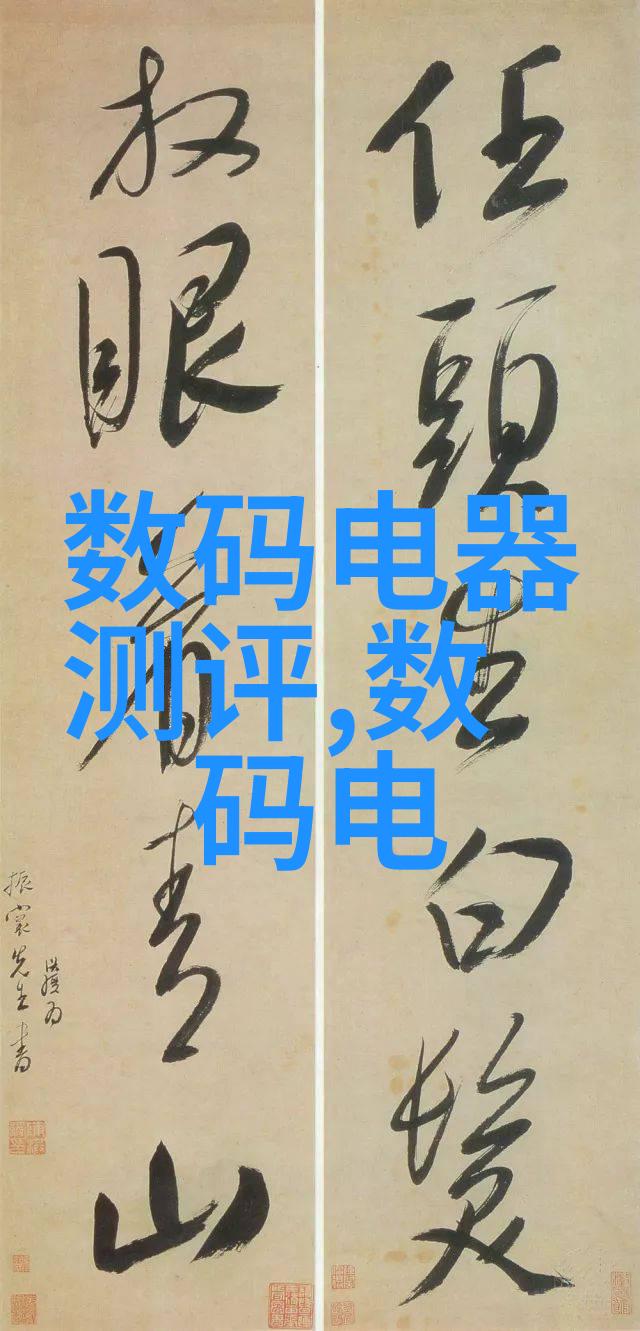 任頭生白髮
放眼看青山
先生書
数码电器
测评,数
码电